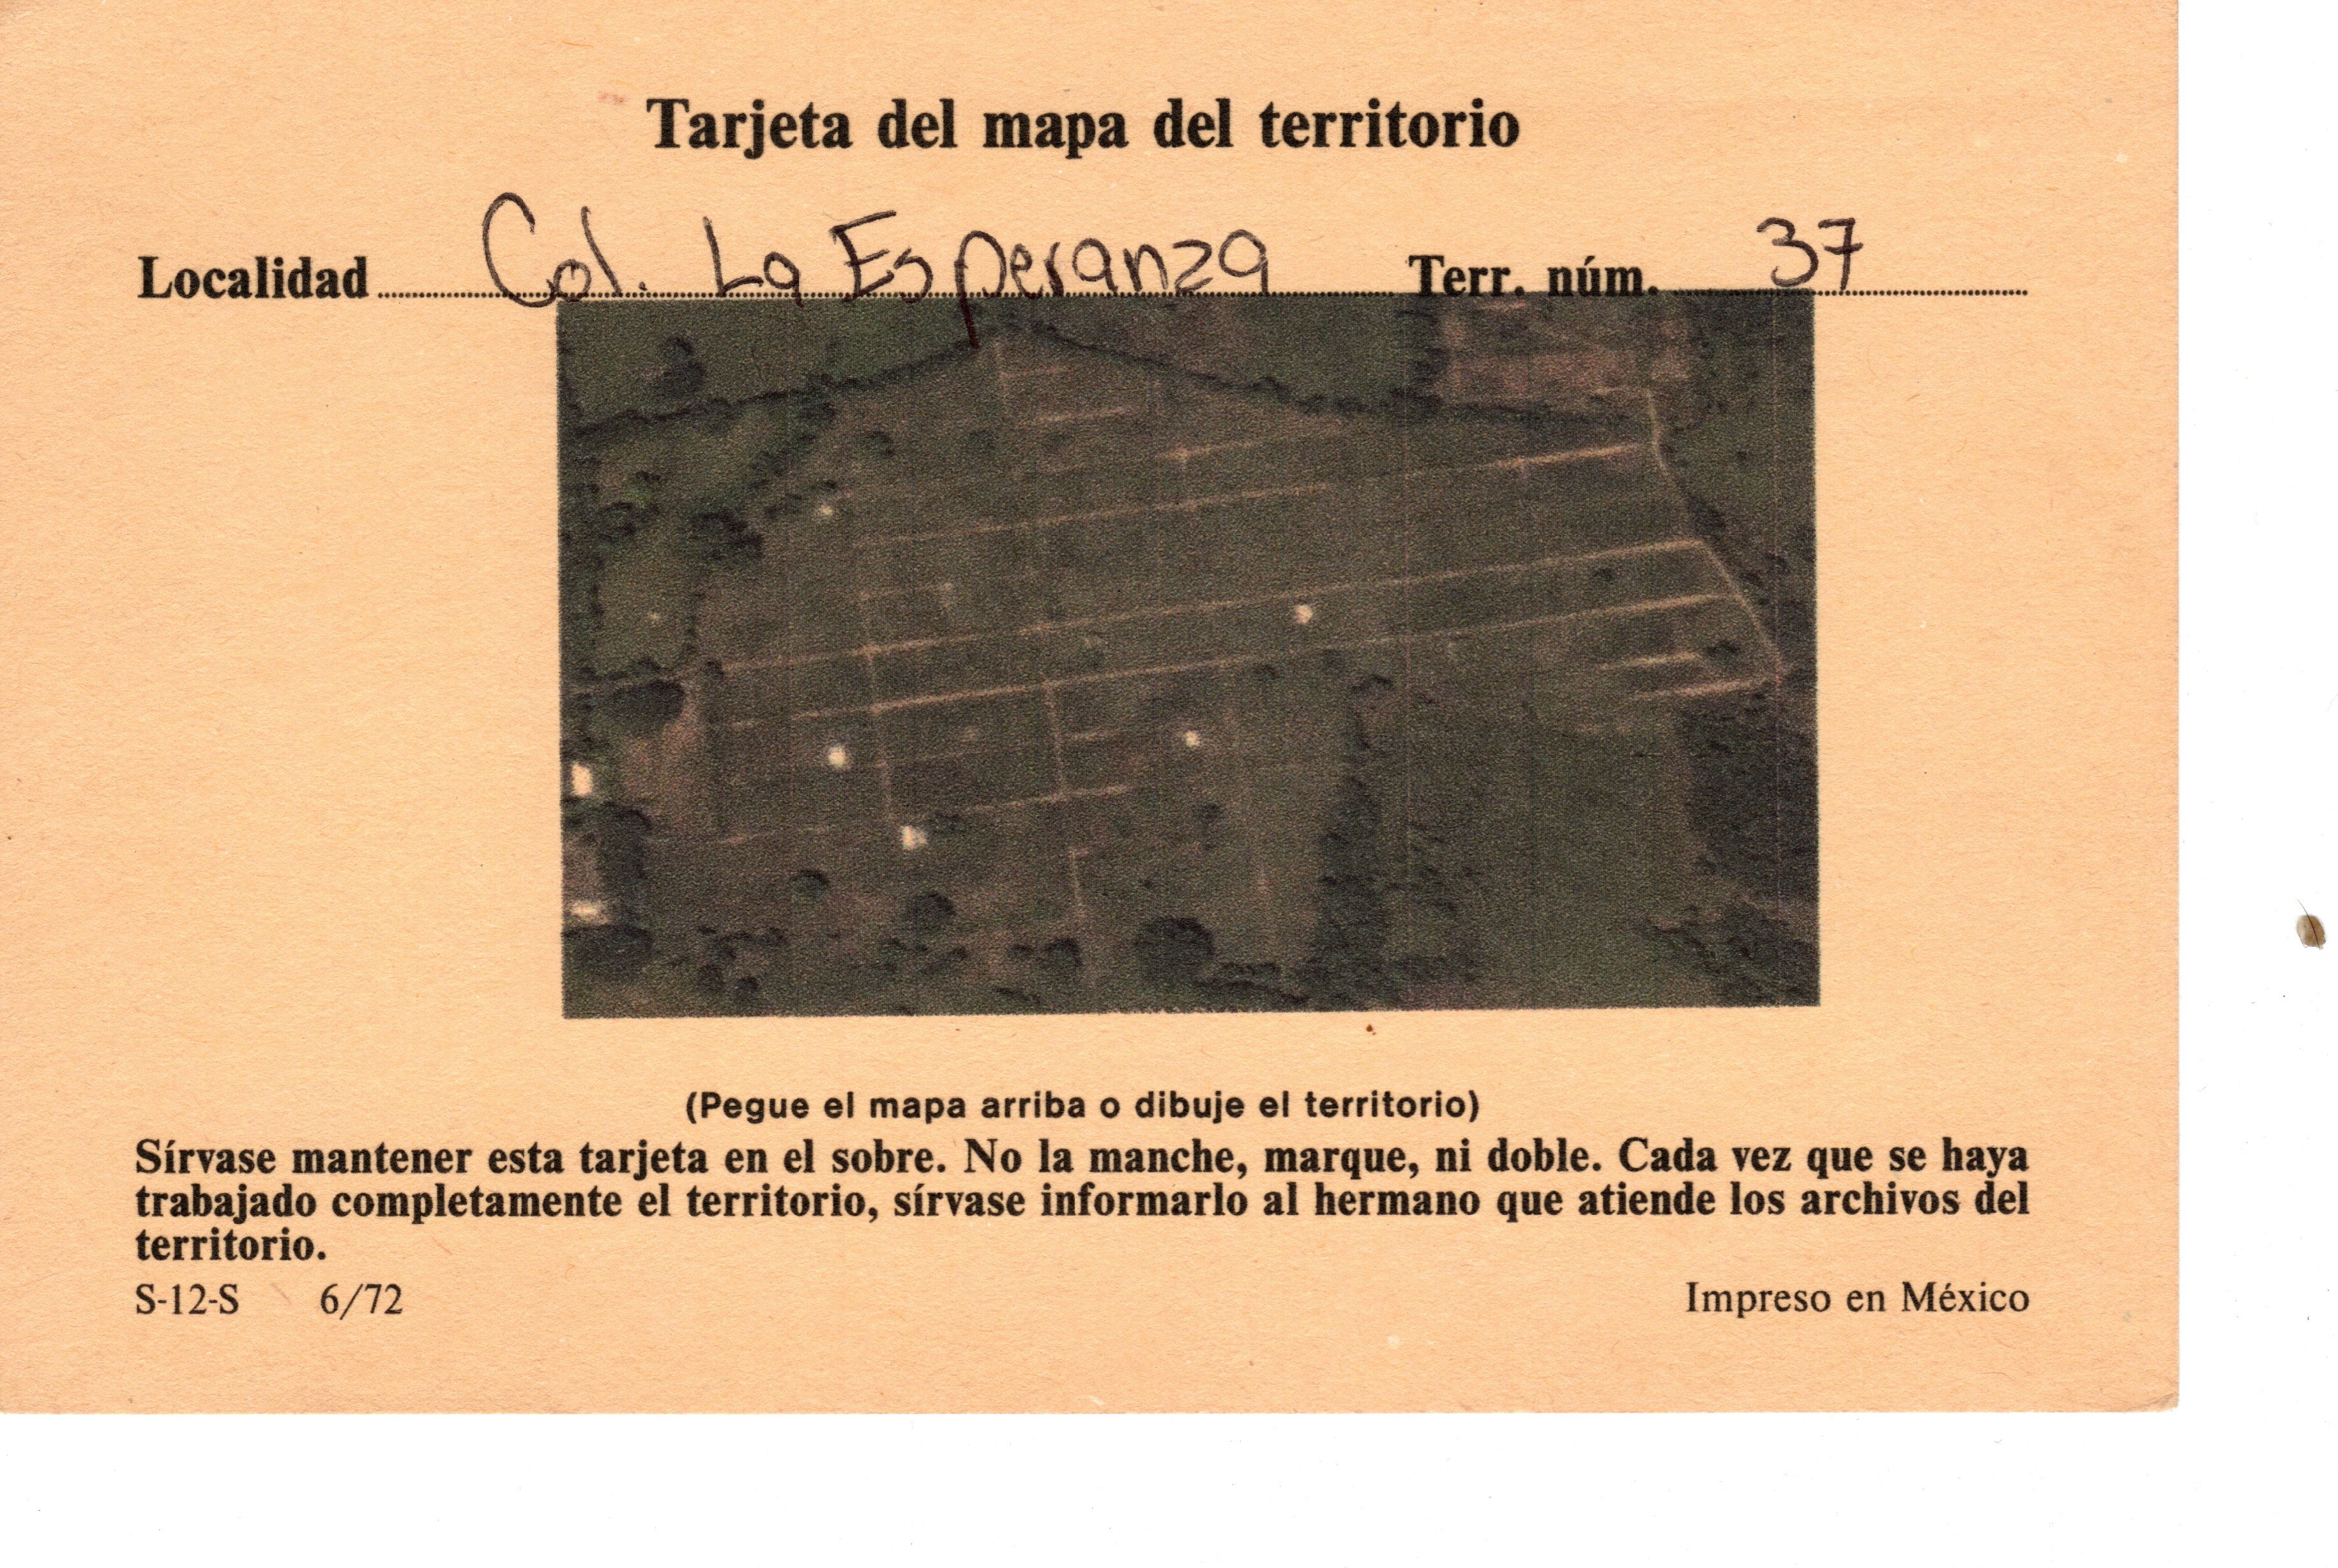 Tarjeta del mapa del territorio
Localidad Col. La Esperanza Terr. núm. 37
(Pegue el mapa arriba o dibuje el territorio)
Sírvase mantener esta tarjeta en el sobre. No la manche, marque, ni doble. Cada vez que se haya
trabajado completamente el territorio, sírvase informarlo al hermano que atiende los archivos del
territorio.
S-12-S 6/72 Impreso en México